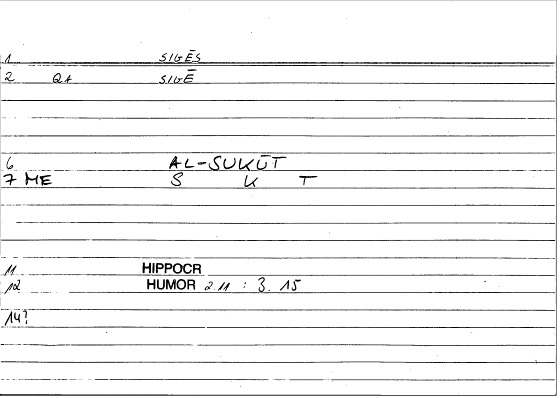 1 SIGĒS
2 QA SIGĒ
6 AL-SUKŪT
7 ME S K T
11 HIPPOCR
12 HUMOR 2.11 : 3. 15
14?